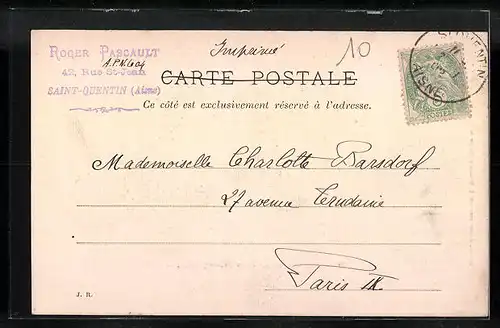 ROGER PASCAULT
42, Rue St-Jean
SAINT-QUENTIN (Aisne)
Imprimé
10
CARTE POSTALE
Ce côté est exclusivement réservé à l'adresse.
ST QUENTIN
AISNE
POSTES
Mademoiselle Charlotte Barsdorf
27 avenue Trudaine
Paris IX
J. R.